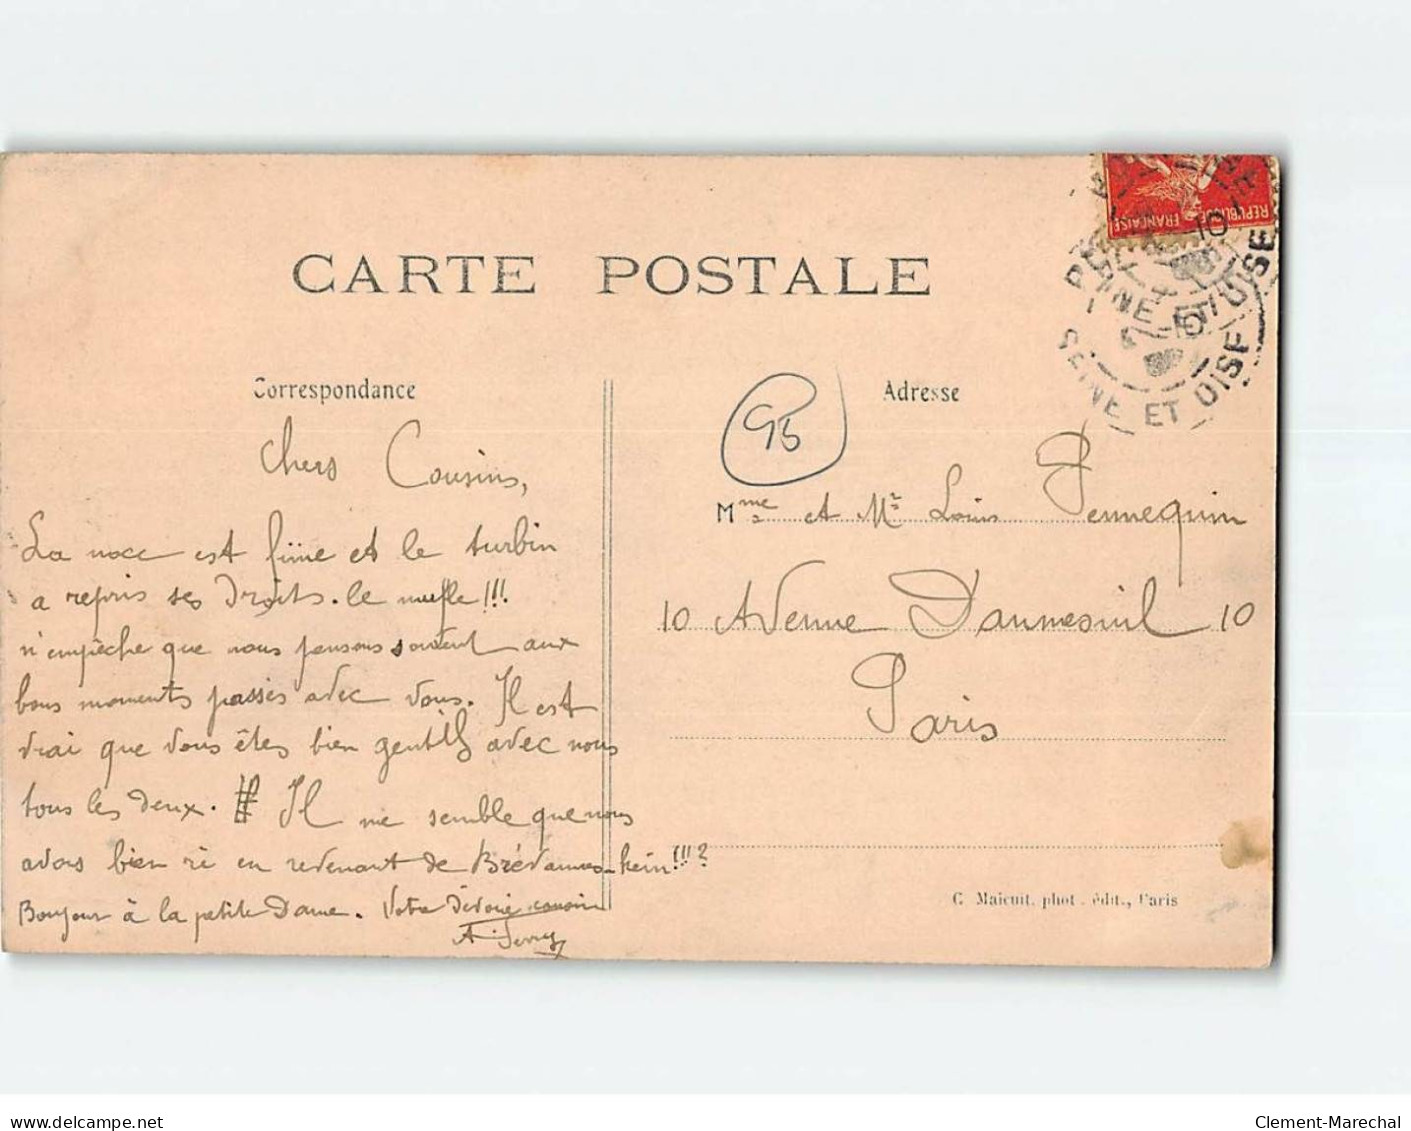 CARTE POSTALE
REPUBLIQUE FRANÇAISE
SEINE ET OISE
Correspondance
Adresse
95
Chers Cousins,
La noce est finie et le turbin
a repris ses droits. le mufle!!!
n'empêche que nous pensons souvent aux
bons moments passés avec vous. Il est
vrai que vous êtes bien gentils avec nous
tous les deux. Il me semble que nous
avons bien ri en revenant de Brévannes - hein!!!?
Bonjour à la petite Dame. Votre dévoué cousin
A.
Mme et Mr Louis Pennequin
10 Avenue Daumesnil 10
Paris
C. Maicuit, phot. édit., Paris
delcampe.net
Clement-Marechal